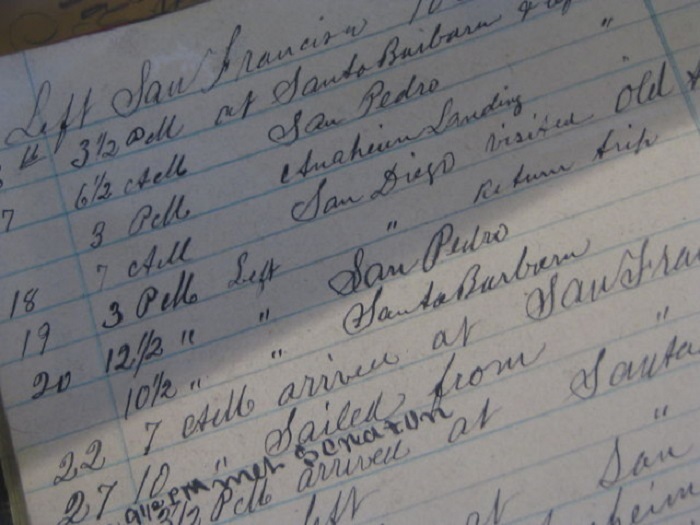 Left San Francisco 10
3½ PM at Santa Barbara &
6½ AM San Pedro "
7 3 PM Anaheim Landing
7 AM San Diego visited Old
18 3 PM Left " Return trip
19 12½ " " San Pedro
20 10½ " " Santa Barbara
22 7 AM arrived at San Fran
27 10 " Sailed from "
9½ PM met Senator
3½ PM arrived at Santa
left "
at San